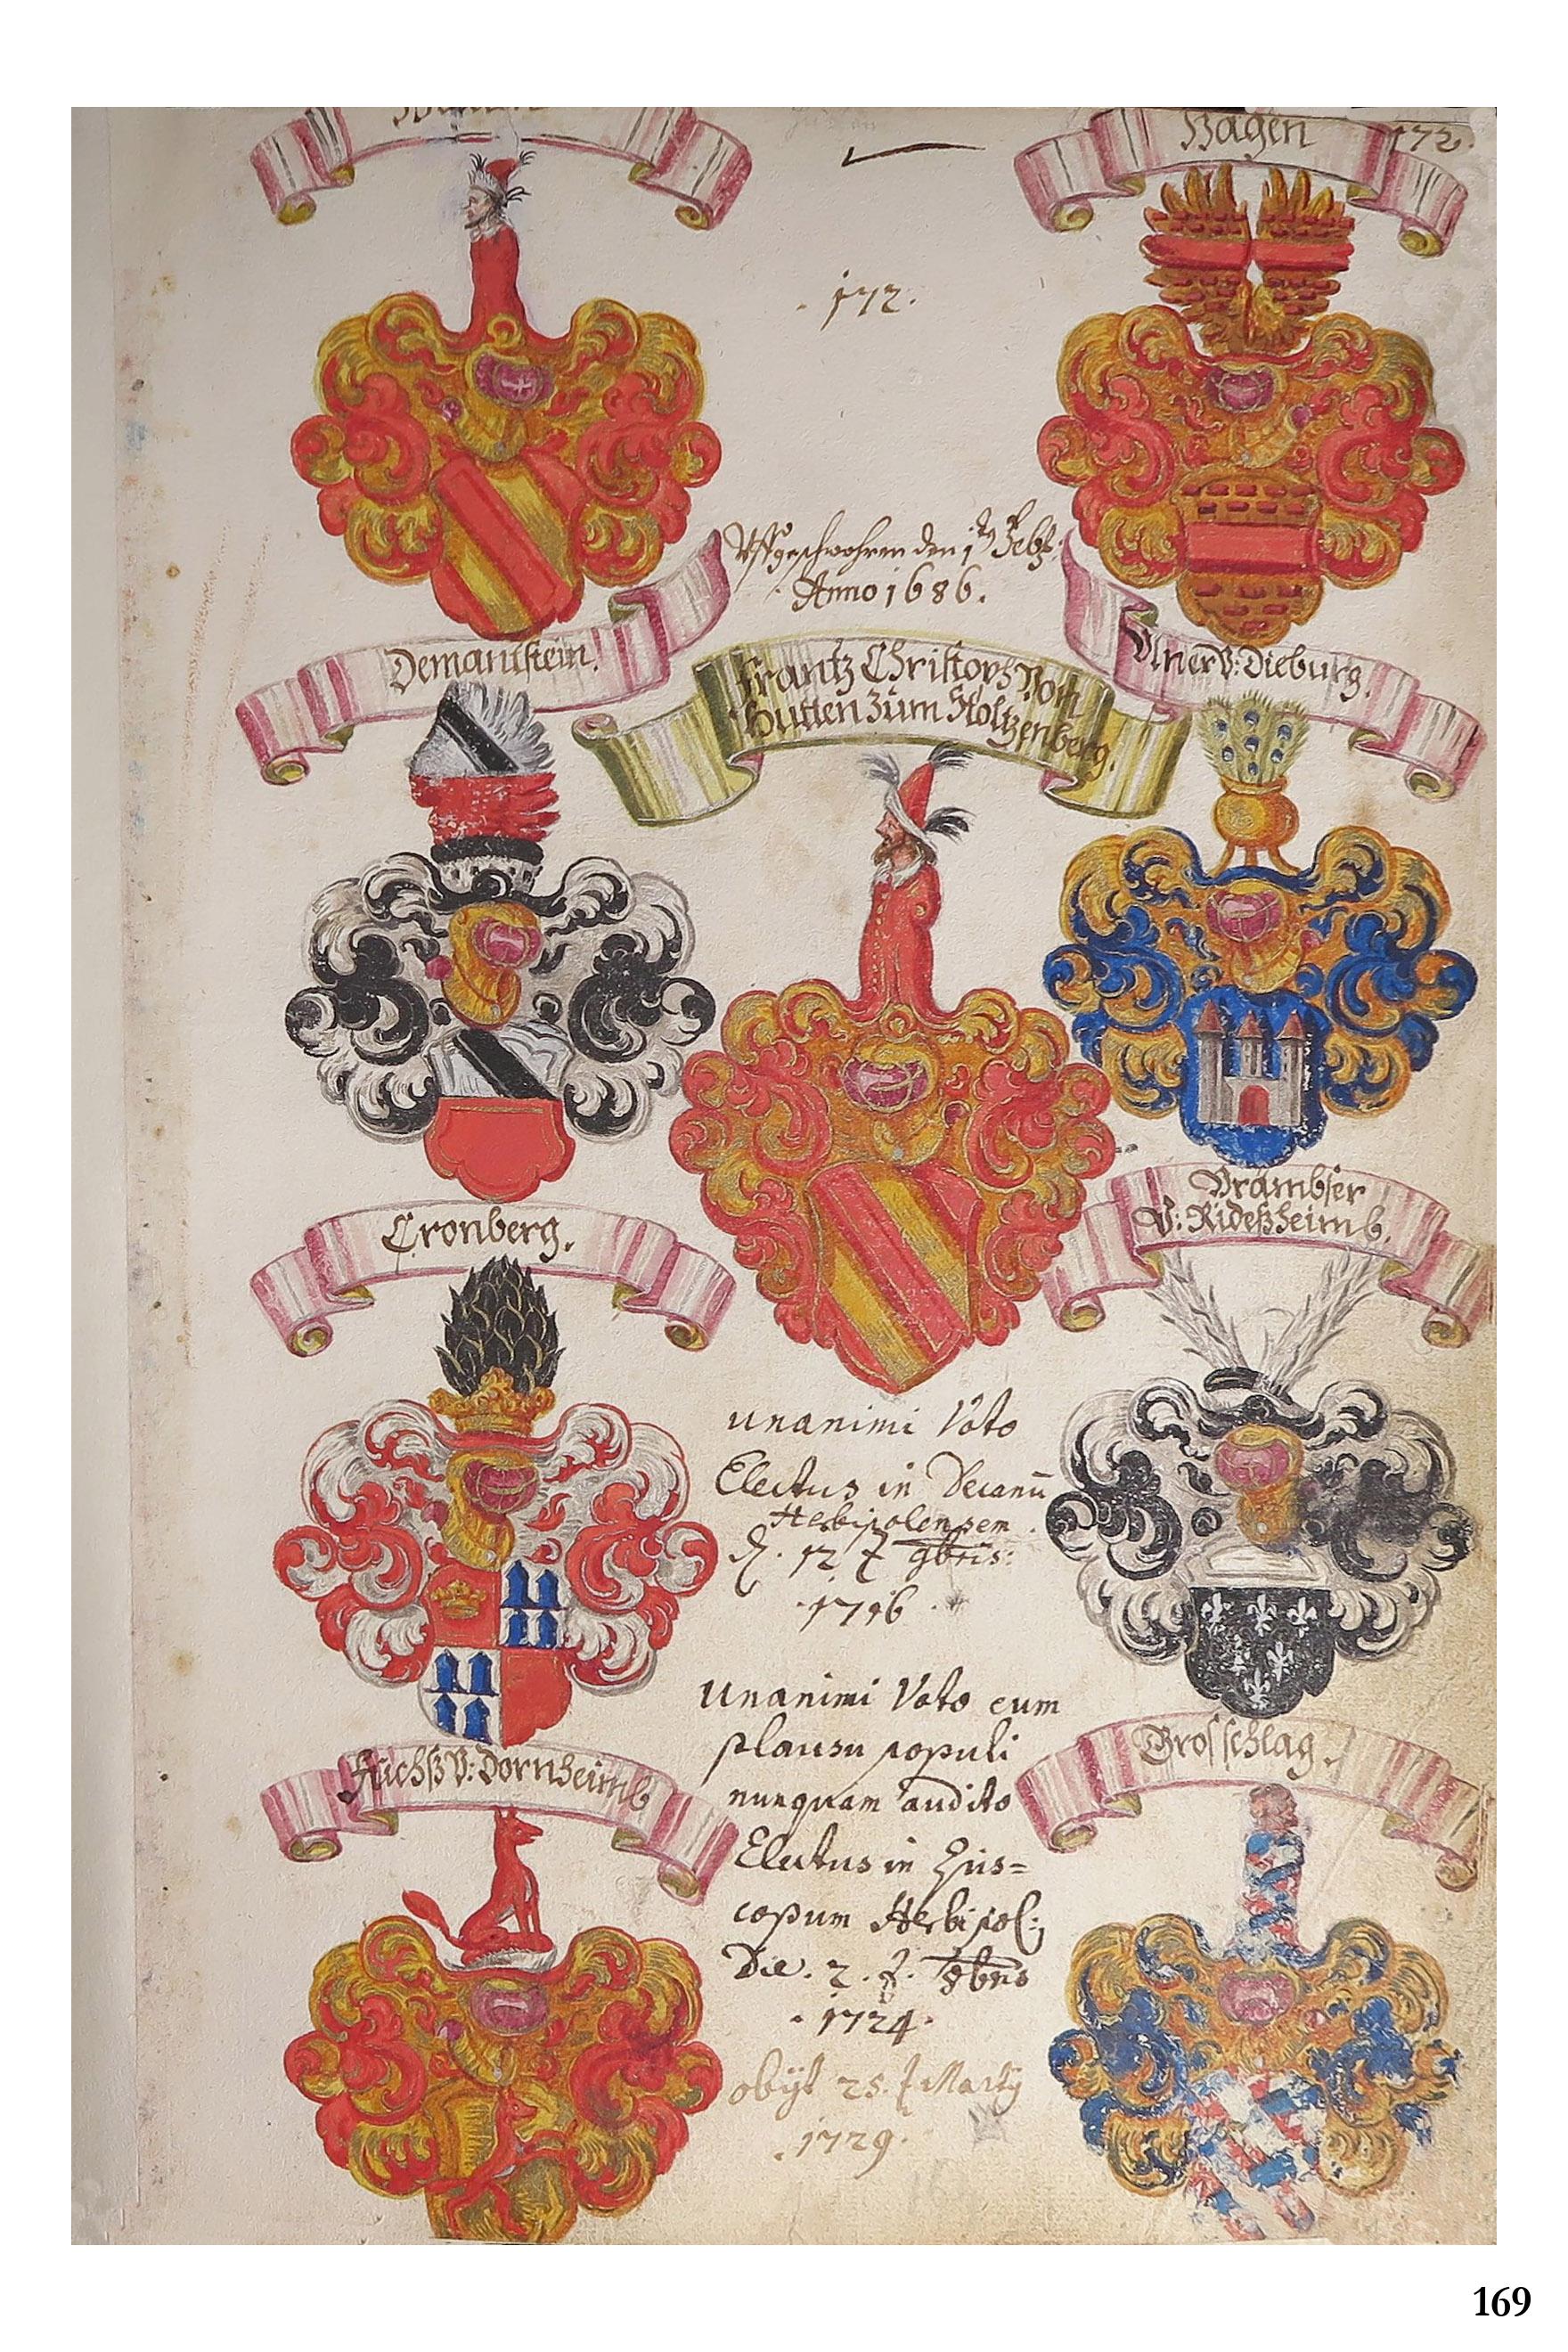 Hagen
172.
172.
Vffgeschwohren den 1ten Febr:
Anno 1686.
Demantstein.
Frantz Christoph Von
Hutten zum Stoltzenberg.
Vlner V: Dieburg.
Cronberg.
Brambser
V: Rideßheimb.
unanimi Voto
Electus in Decanū
Herbipolensem
d. 12 t 9bris:
1716
Fuchß V: Dornheimb
Groschlag.
Unanimi Voto cum
plausu populi
nunquam audito
Electus in Epis=
copum Herbipol:
Die. 2. t. 8bris
1724.
obijt 25. t Martij
1729.
169